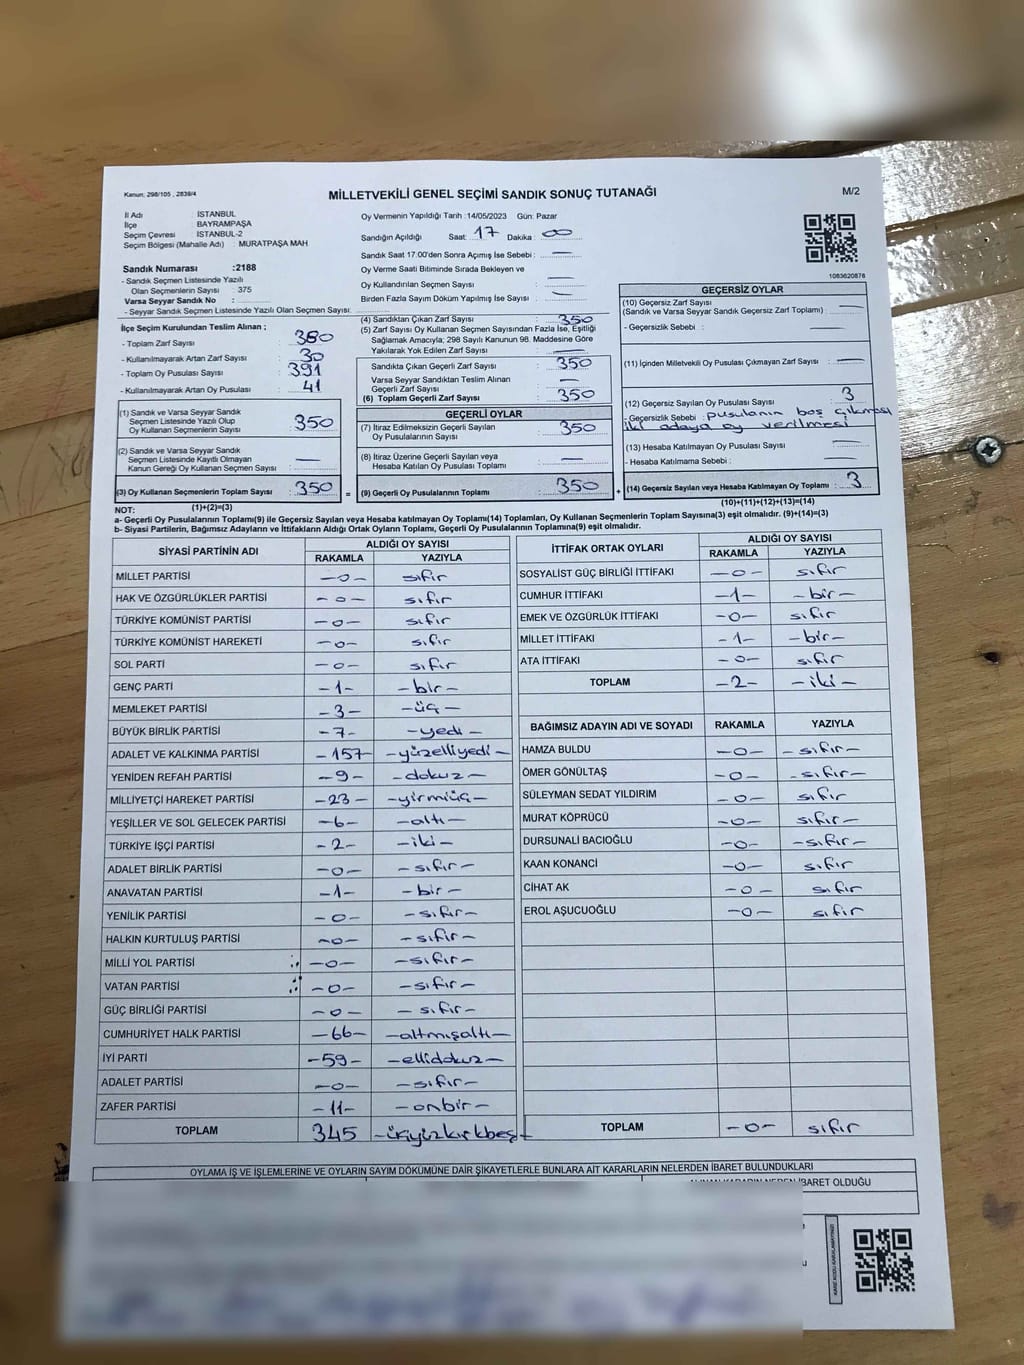 Kanun: 298/105 , 2839/4
MİLLETVEKİLİ GENEL SEÇİMİ SANDIK SONUÇ TUTANAĞI
M/2
İl Adı : İSTANBUL
İlçe : BAYRAMPAŞA
Seçim Çevresi : İSTANBUL-2
Seçim Bölgesi (Mahalle Adı) : MURATPAŞA MAH
Oy Vermenin Yapıldığı Tarih :14/05/2023 Gün: Pazar
Sandığın Açıldığı Saat: 17 Dakika : 00
Sandık Saat 17:00'den Sonra Açımış İse Sebebi : —
Oy Verme Saati Bitiminde Sırada Bekleyen ve
Oy Kullandırılan Seçmen Sayısı : —
Birden Fazla Sayım Döküm Yapılmış İse Sayısı : —
1083620878
Sandık Numarası :2188
- Sandık Seçmen Listesinde Yazılı
Olan Seçmenlerin Sayısı : 375
Varsa Seyyar Sandık No :
- Seyyar Sandık Seçmen Listesinde Yazılı Olan Seçmen Sayısı:
İlçe Seçim Kurulundan Teslim Alınan ;
- Toplam Zarf Sayısı : 380
- Kullanılmayarak Artan Zarf Sayısı : 30
- Toplam Oy Pusulası Sayısı : 391
- Kullanılmayarak Artan Oy Pusulası : 41
(1) Sandık ve Varsa Seyyar Sandık
Seçmen Listesinde Yazılı Olup
Oy Kullanan Seçmenlerin Sayısı : 350
(2) Sandık ve Varsa Seyyar Sandık
Seçmen Listesinde Kayıtlı Olmayan
Kanun Gereği Oy Kullanan Seçmen Sayısı : —
(3) Oy Kullanan Seçmenlerin Toplam Sayısı : 350
(1)+(2)=(3)
(4) Sandıktan Çıkan Zarf Sayısı : 350
(5) Zarf Sayısı Oy Kullanan Seçmen Sayısından Fazla İse, Eşitliği
Sağlamak Amacıyla; 298 Sayılı Kanunun 98. Maddesine Göre
Yakılarak Yok Edilen Zarf Sayısı : —
Sandıkta Çıkan Geçerli Zarf Sayısı : 350
Varsa Seyyar Sandıktan Teslim Alınan
Geçerli Zarf Sayısı : —
(6) Toplam Geçerli Zarf Sayısı : 350
GEÇERLİ OYLAR
(7) İtiraz Edilmeksizin Geçerli Sayılan
Oy Pusulalarının Sayısı : 350
(8) İtiraz Üzerine Geçerli Sayılan veya
Hesaba Katılan Oy Pusulası Toplamı : —
= (9) Geçerli Oy Pusulalarının Toplamı : 350
GEÇERSİZ OYLAR
(10) Geçersiz Zarf Sayısı
(Sandık ve Varsa Seyyar Sandık Geçersiz Zarf Toplamı) : —
- Geçersizlik Sebebi : —
(11) İçinden Milletvekili Oy Pusulası Çıkmayan Zarf Sayısı : —
(12) Geçersiz Sayılan Oy Pusulası Sayısı : 3
- Geçersizlik Sebebi : pusulanın boş çıkması
iki adaya oy verilmesi
(13) Hesaba Katılmayan Oy Pusulası Sayısı : —
- Hesaba Katılmama Sebebi : —
+ (14) Geçersiz Sayılan veya Hesaba Katılmayan Oy Toplamı : 3
(10)+(11)+(12)+(13)=(14)
NOT:
a- Geçerli Oy Pusulalarının Toplamı(9) ile Geçersiz Sayılan veya Hesaba katılmayan Oy Toplamı(14) Toplamları, Oy Kullanan Seçmenlerin Toplam Sayısına(3) eşit olmalıdır. (9)+(14)=(3)
b- Siyasi Partilerin, Bağımsız Adayların ve İttifakların Aldığı Ortak Oyların Toplamı, Geçerli Oy Pusulalarının Toplamına(9) eşit olmalıdır.
SİYASİ PARTİNİN ADI ALDIĞI OY SAYISI
RAKAMLA YAZIYLA
MİLLET PARTİSİ —0— sıfır
HAK VE ÖZGÜRLÜKLER PARTİSİ —0— sıfır
TÜRKİYE KOMÜNİST PARTİSİ —0— sıfır
TÜRKİYE KOMÜNİST HAREKETİ —0— sıfır
SOL PARTİ —0— sıfır
GENÇ PARTİ —1— —bir—
MEMLEKET PARTİSİ —3— —üç—
BÜYÜK BİRLİK PARTİSİ —7— —yedi—
ADALET VE KALKINMA PARTİSİ —157— —yüzelliyedi—
YENİDEN REFAH PARTİSİ —9— —dokuz—
MİLLİYETÇİ HAREKET PARTİSİ —23— —yirmiüç—
YEŞİLLER VE SOL GELECEK PARTİSİ —6— —altı—
TÜRKİYE İŞÇİ PARTİSİ —2— —iki—
ADALET BİRLİK PARTİSİ —0— —sıfır—
ANAVATAN PARTİSİ —1— —bir—
YENİLİK PARTİSİ —0— —sıfır—
HALKIN KURTULUŞ PARTİSİ —0— —sıfır—
MİLLİ YOL PARTİSİ —0— —sıfır—
VATAN PARTİSİ —0— —sıfır—
GÜÇ BİRLİĞİ PARTİSİ —0— —sıfır—
CUMHURİYET HALK PARTİSİ —66— —altmışaltı—
İYİ PARTİ —59— —ellidokuz—
ADALET PARTİSİ —0— —sıfır—
ZAFER PARTİSİ —11— —onbir—
TOPLAM 345 —üçyüzkırkbeş—
İTTİFAK ORTAK OYLARI ALDIĞI OY SAYISI
RAKAMLA YAZIYLA
SOSYALİST GÜÇ BİRLİĞİ İTTİFAKI —0— sıfır
CUMHUR İTTİFAKI —1— —bir—
EMEK VE ÖZGÜRLÜK İTTİFAKI —0— sıfır
MİLLET İTTİFAKI —1— —bir—
ATA İTTİFAKI —0— sıfır
TOPLAM —2— —iki—
BAĞIMSIZ ADAYIN ADI VE SOYADI RAKAMLA YAZIYLA
HAMZA BULDU —0— —sıfır—
ÖMER GÖNÜLTAŞ —0— —sıfır—
SÜLEYMAN SEDAT YILDIRIM —0— sıfır
MURAT KÖPRÜCÜ —0— sıfır—
DURSUNALİ BACIOĞLU —0— —sıfır—
KAAN KONANCİ —0— sıfır
CİHAT AK —0— sıfır
EROL AŞUCUOĞLU —0— sıfır
TOPLAM —0— sıfır
OYLAMA İŞ VE İŞLEMLERİNE VE OYLARIN SAYIM DÖKÜMÜNE DAİR ŞİKAYETLERLE BUNLARA AİT KARARLARIN NELERDEN İBARET BULUNDUKLARI
ALINAN KARARIN NEDEN İBARET OLDUĞU
KARE KODU KARALAMAYINIZ!